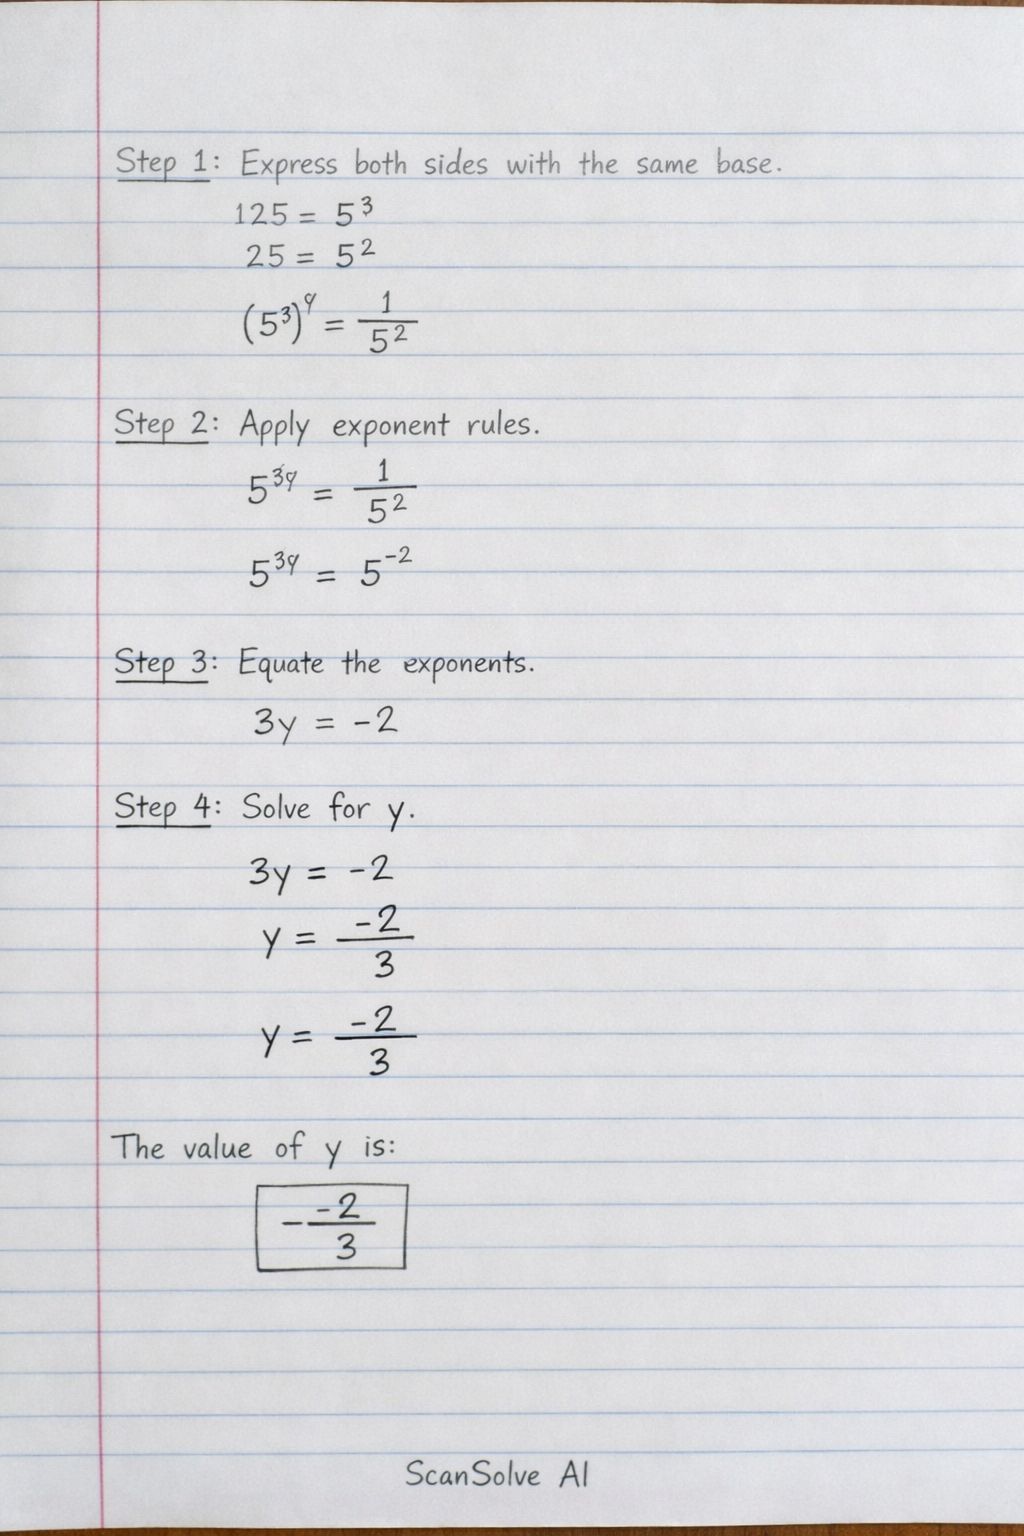 Step 1: Express both sides with the same base.
125 = 5³
25 = 5²
(5³)^y = 1/5²
Step 2: Apply exponent rules.
5^3y = 1/5²
5^3y = 5^-2
Step 3: Equate the exponents.
3y = -2
Step 4: Solve for y.
3y = -2
y = -2/3
y = -2/3
The value of y is:
- -2/3
ScanSolve AI